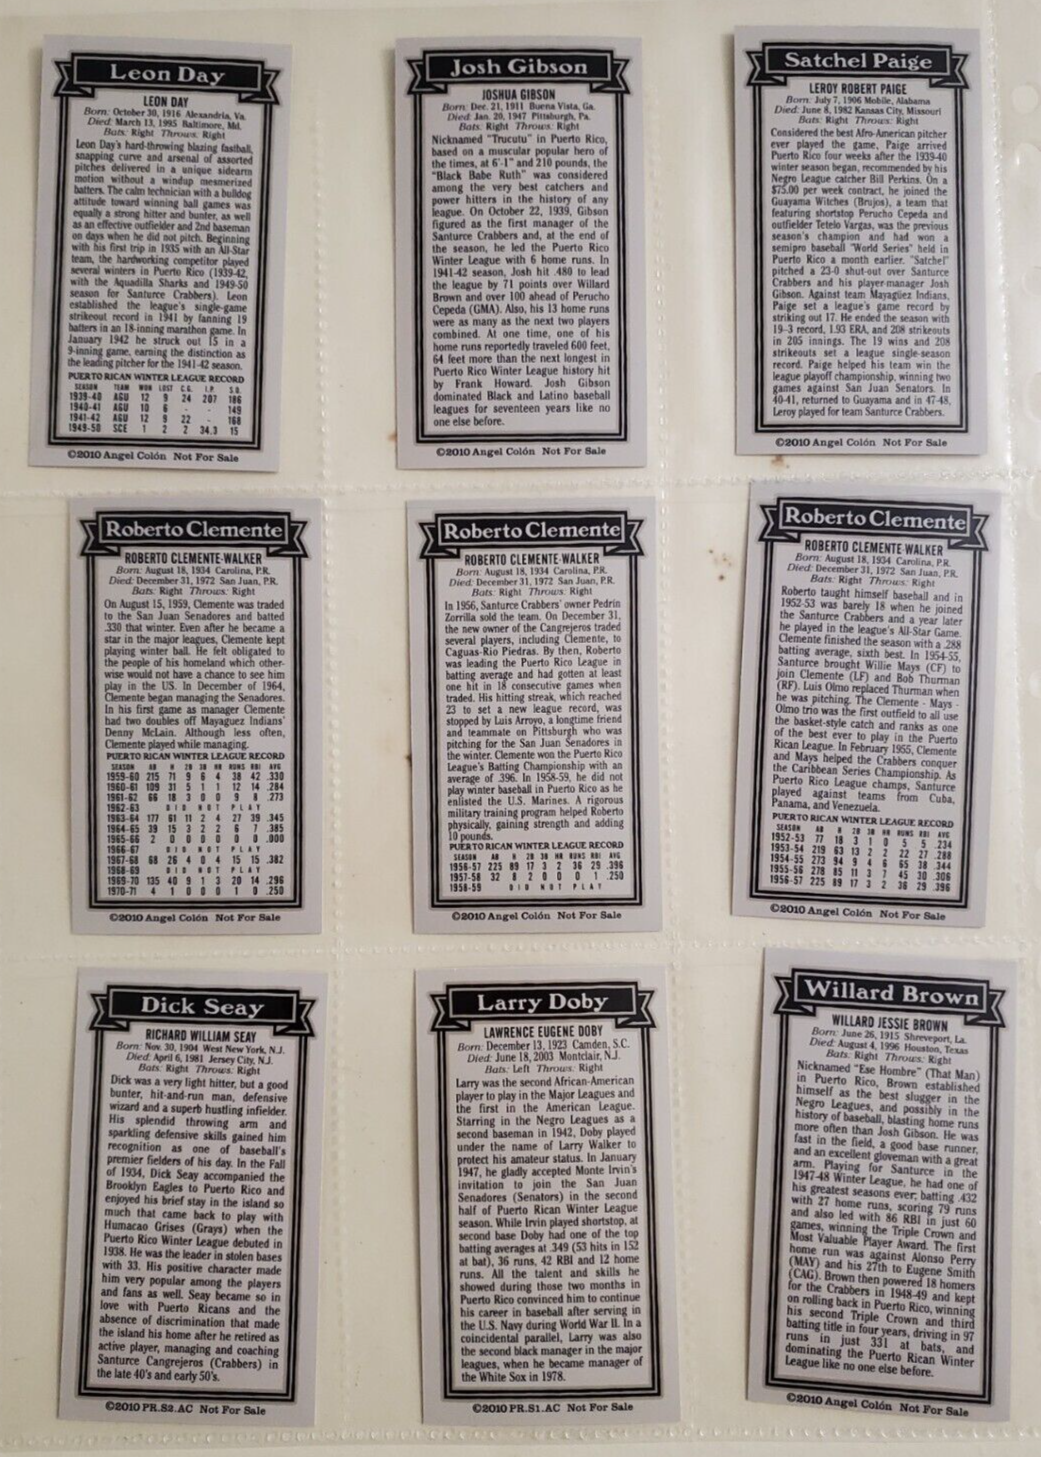 Leon Day
LEON DAY
Born: October 30, 1916 Alexandria, Va.
Died: March 13, 1995 Baltimore, Md.
Bats: Right Throws: Right
Leon Day's hard-throwing blazing fastball,
snapping curve and arsenal of assorted
pitches delivered in a unique sidearm
motion without a windup mesmerized
batters. The calm technician with a bulldog
attitude toward winning ball games was
equally a strong hitter and bunter, as well
as an effective outfielder and 2nd baseman
on days when he did not pitch. Beginning
with his first trip in 1935 with an All-Star
team, the hardworking competitor played
several winters in Puerto Rico (1939-42,
with the Aquadilla Sharks and 1949-50
season for Santurce Crabbers). Leon
established the league's single-game
strikeout record in 1941 by fanning 19
batters in an 18-inning marathon game. In
January 1942 he struck out 15 in a
9-inning game, earning the distinction as
the leading pitcher for the 1941-42 season.
PUERTO RICAN WINTER LEAGUE RECORD
SEASON TEAM WON LOST C.G. I.P. S.O.
1939-40 AGU 12 9 24 207 186
1940-41 AGU 10 6 - - 149
1941-42 AGU 12 9 22 - 168
1949-50 SCE 1 2 2 34.3 15
©2010 Angel Colón Not For Sale
Josh Gibson
JOSHUA GIBSON
Born: Dec. 21, 1911 Buena Vista, Ga.
Died: Jan. 20, 1947 Pittsburgh, Pa.
Bats: Right Throws: Right
Nicknamed "Trucutu" in Puerto Rico,
based on a muscular popular hero of
the times, at 6'-1" and 210 pounds, the
"Black Babe Ruth" was considered
among the very best catchers and
power hitters in the history of any
league. On October 22, 1939, Gibson
figured as the first manager of the
Santurce Crabbers and, at the end of
the season, he led the Puerto Rico
Winter League with 6 home runs. In
1941-42 season, Josh hit .480 to lead
the league by 71 points over Willard
Brown and over 100 ahead of Perucho
Cepeda (GMA). Also, his 13 home runs
were as many as the next two players
combined. At one time, one of his
home runs reportedly traveled 600 feet,
64 feet more than the next longest in
Puerto Rico Winter League history hit
by Frank Howard. Josh Gibson
dominated Black and Latino baseball
leagues for seventeen years like no
one else before.
©2010 Angel Colón Not For Sale
Satchel Paige
LEROY ROBERT PAIGE
Born: July 7, 1906 Mobile, Alabama
Died: June 8, 1982 Kansas City, Missouri
Bats: Right Throws: Right
Considered the best Afro-American pitcher
ever played the game, Paige arrived
Puerto Rico four weeks after the 1939-40
winter season began, recommended by his
Negro League catcher Bill Perkins. On a
$75.00 per week contract, he joined the
Guayama Witches (Brujos), a team that
featuring shortstop Perucho Cepeda and
outfielder Tetelo Vargas, was the previous
season's champion and had won a
semipro baseball "World Series" held in
Puerto Rico a month earlier. "Satchel"
pitched a 23-0 shut-out over Santurce
Crabbers and his player-manager Josh
Gibson. Against team Mayagüez Indians,
Paige set a league's game record by
striking out 17. He ended the season with
19-3 record, 1.93 ERA, and 208 strikeouts
in 205 innings. The 19 wins and 208
strikeouts set a league single-season
record. Paige helped his team win the
league playoff championship, winning two
games against San Juan Senators. In
40-41, returned to Guayama and in 47-48,
Leroy played for team Santurce Crabbers.
©2010 Angel Colón Not For Sale
Roberto Clemente
ROBERTO CLEMENTE-WALKER
Born: August 18, 1934 Carolina, P.R.
Died: December 31, 1972 San Juan, P.R.
Bats: Right Throws: Right
On August 15, 1959, Clemente was traded
to the San Juan Senadores and batted
.330 that winter. Even after he became a
star in the major leagues, Clemente kept
playing winter ball. He felt obligated to
the people of his homeland which other-
wise would not have a chance to see him
play in the US. In December of 1964,
Clemente began managing the Senadores.
In his first game as manager Clemente
had two doubles off Mayaguez Indians'
Denny McLain. Although less often,
Clemente played while managing.
PUERTO RICAN WINTER LEAGUE RECORD
SEASON AB H 2B 3B HR RUNS RBI AVG
1959-60 215 71 9 6 4 38 42 .330
1960-61 109 31 5 1 1 12 14 .284
1961-62 66 18 3 0 0 9 8 .273
1962-63 DID NOT PLAY
1963-64 177 61 11 2 4 27 39 .345
1964-65 39 15 3 2 2 6 7 .385
1965-66 2 0 0 0 0 0 0 .000
1966-67 DID NOT PLAY
1967-68 68 26 4 0 4 15 15 .382
1968-69 DID NOT PLAY
1969-70 135 40 9 1 3 20 14 .296
1970-71 4 1 0 0 0 1 0 .250
©2010 Angel Colón Not For Sale
Roberto Clemente
ROBERTO CLEMENTE-WALKER
Born: August 18, 1934 Carolina, P.R.
Died: December 31, 1972 San Juan, P.R.
Bats: Right Throws: Right
In 1956, Santurce Crabbers' owner Pedrin
Zorrilla sold the team. On December 31,
the new owner of the Cangrejeros traded
several players, including Clemente, to
Caguas-Rio Piedras. By then, Roberto
was leading the Puerto Rico League in
batting average and had gotten at least
one hit in 18 consecutive games when
traded. His hitting streak, which reached
23 to set a new league record, was
stopped by Luis Arroyo, a longtime friend
and teammate on Pittsburgh who was
pitching for the San Juan Senadores in
the winter. Clemente won the Puerto Rico
League's Batting Championship with an
average of .396. In 1958-59, he did not
play winter baseball in Puerto Rico as he
enlisted the U.S. Marines. A rigorous
military training program helped Roberto
physically, gaining strength and adding
10 pounds.
PUERTO RICAN WINTER LEAGUE RECORD
SEASON AB H 2B 3B HR RUNS RBI AVG
1956-57 225 89 17 3 2 36 29 .396
1957-58 32 8 2 0 0 0 1 .250
1958-59 DID NOT PLAY
©2010 Angel Colón Not For Sale
Roberto Clemente
ROBERTO CLEMENTE-WALKER
Born: August 18, 1934 Carolina, P.R.
Died: December 31, 1972 San Juan, P.R.
Bats: Right Throws: Right
Roberto taught himself baseball and in
1952-53 was barely 18 when he joined
the Santurce Crabbers and a year later
he played in the league's All-Star Game.
Clemente finished the season with a .288
batting average, sixth best. In 1954-55,
Santurce brought Willie Mays (CF) to
join Clemente (LF) and Bob Thurman
(RF). Luis Olmo replaced Thurman when
he was pitching. The Clemente - Mays -
Olmo trio was the first outfield to all use
the basket-style catch and ranks as one
of the best ever to play in the Puerto
Rican League. In February 1955, Clemente
and Mays helped the Crabbers conquer
the Caribbean Series Championship. As
Puerto Rico League champs, Santurce
played against teams from Cuba,
Panama, and Venezuela.
PUERTO RICAN WINTER LEAGUE RECORD
SEASON AB H 2B 3B HR RUNS RBI AVG
1952-53 77 18 3 1 0 5 5 .234
1953-54 219 63 13 2 2 22 27 .288
1954-55 273 94 9 4 6 65 38 .344
1955-56 278 85 11 3 7 45 30 .306
1956-57 225 89 17 3 2 36 29 .396
©2010 Angel Colón Not For Sale
Dick Seay
RICHARD WILLIAM SEAY
Born: Nov. 30, 1904 West New York, N.J.
Died: April 6, 1981 Jersey City, N.J.
Bats: Right Throws: Right
Dick was a very light hitter, but a good
bunter, hit-and-run man, defensive
wizard and a superb hustling infielder.
His splendid throwing arm and
sparkling defensive skills gained him
recognition as one of baseball's
premier fielders of his day. In the Fall
of 1934, Dick Seay accompanied the
Brooklyn Eagles to Puerto Rico and
enjoyed his brief stay in the island so
much that came back to play with
Humacao Grises (Grays) when the
Puerto Rico Winter League debuted in
1938. He was the leader in stolen bases
with 33. His positive character made
him very popular among the players
and fans as well. Seay became so in
love with Puerto Ricans and the
absence of discrimination that made
the island his home after he retired as
active player, managing and coaching
Santurce Cangrejeros (Crabbers) in
the late 40's and early 50's.
©2010 PR.S2.AC Not For Sale
Larry Doby
LAWRENCE EUGENE DOBY
Born: December 13, 1923 Camden, S.C.
Died: June 18, 2003 Montclair, N.J.
Bats: Left Throws: Right
Larry was the second African-American
player to play in the Major Leagues and
the first in the American League.
Starring in the Negro Leagues as a
second baseman in 1942, Doby played
under the name of Larry Walker to
protect his amateur status. In January
1947, he gladly accepted Monte Irvin's
invitation to join the San Juan
Senadores (Senators) in the second
half of Puerto Rican Winter League
season. While Irvin played shortstop, at
second base Doby had one of the top
batting averages at .349 (53 hits in 152
at bat), 36 runs, 42 RBI and 12 home
runs. All the talent and skills he
showed during those two months in
Puerto Rico convinced him to continue
his career in baseball after serving in
the U.S. Navy during World War II. In a
coincidental parallel, Larry was also
the second black manager in the major
leagues, when he became manager of
the White Sox in 1978.
©2010 PR.S1.AC Not For Sale
Willard Brown
WILLARD JESSIE BROWN
Born: June 26, 1915 Shreveport, La.
Died: August 4, 1996 Houston, Texas
Bats: Right Throws: Right
Nicknamed "Ese Hombre" (That Man)
in Puerto Rico, Brown established
himself as the best slugger in the
Negro Leagues, and possibly in the
history of baseball, blasting home runs
more often than Josh Gibson. He was
fast in the field, a good base runner,
and an excellent gloveman with a great
arm. Playing for Santurce in the
1947-48 Winter League, he had one of
his greatest seasons ever; batting .432
with 27 home runs, scoring 79 runs
and also led with 86 RBI in just 60
games, winning the Triple Crown and
Most Valuable Player Award. The first
home run was against Alonso Perry
(MAY) and his 27th to Eugene Smith
(CAG). Brown then powered 18 homers
for the Crabbers in 1948-49 and kept
on rolling back in Puerto Rico, winning
his second Triple Crown and third
batting title in four years, driving in 97
runs in just 331 at bats, and
dominating the Puerto Rican Winter
League like no one else before.
©2010 Angel Colón Not For Sale